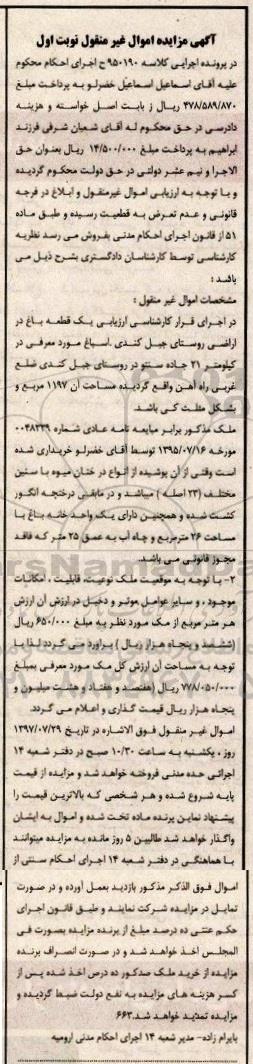 آگهی مزایده اموال غیر منقول نوبت اول
در پرونده اجرایی کلاسه ۹۵۰۱۹۰ ج اجرای احکام محکوم
علیه آقای اسماعیل اسماعیل خضرلو به پرداخت مبلغ
۴۷۸/۵۸۹/۸۷۰ ریال ز بابت اصل خواسته و هزینه
دادرسی در حق محکوم له آقای شعبان شرفی فرزند
ابراهیم به پرداخت مبلغ ۱۴/۵۰۰/۰۰۰ ریال بعنوان حق
الاجرا و نیم عشر دولتی در حق دولت محکوم گردیده
و با توجه به ارزیابی اموال غیرمنقول و ابلاغ در فرجه
قانونی و عدم تعرض به قطعیت رسیده و طبق ماده
۵۱ از قانون اجرای احکام مدنی بفروش می رسد نظریه
کارشناسی توسط کارشناسان دادگستری بشرح ذیل می
باشد :
مشخصات اموال غیر منقول :
در اجرای قرار کارشناسی ارزیابی یک قطعه باغ در
اراضی روستای جبل کندی .اسباغ مورد معرفی در
کیلومتر ۲۱ جاده سنتو در روستای جبل کندی ضلع
غربی راه آهن واقع گردیده مساحت آن ۱۱۹۷ مربع و
بشکل مثلث کی باشد.
ملک مذکور برابر مبایعه نامه عادی شماره ۰۰۴۸۳۳۹
مورخه ۱۳۹۵/۰۷/۱۶ توسط آقای خضرلو خریداری شده
است وقتی از آن پوشیده از انواع در ختان میوه با سنین
مختلف (۲۳ اصله ) میباشد و در مابقی درختچه انگور
کشت شده و همچنین دارای یک واحد خانه باغ با
مساحت ۲۶ مترمربع و چاه آب به عمق ۲۵ متر که فاقد
مجوز قانونی می باشد.
۲- با توجه به موقعیت ملک نوعیت، قابلیت ، امکانات
موجود ، و سایر عوامل موثر و دخیل در ارزش آن ارزش
هر متر مربع از مک مورد نظر به مبلغ ۶۵۰/۰۰۰ ریال
(ششصد و پنجاه هزار ریال ) براورد می گردد لذا با
توجه به مساحت آن ارزش کل مک مورد معرفی بمبلغ
۷۷۸/۰۵۰/۰۰۰ ریال (هفتصد و هفتاد و هشت میلیون و
پنجاه هزار ریال قیمت گذاری و اعلام می گردد.
اموال غیر منقول فوق الاشاره در تاریخ ۱۳۹۷/۰۷/۲۹
روز ، یکشنبه به ساعت ۱۰/۳۰ صبح در دفتر شعبه ۱۴
اجرائی حده مدنی فروخته خواهد شد و مزایده از قیمت
پایه شروع شده و هر شخصی که بالاترین قیمت را
پیشنهاد نماین پرنده ماده تخت شده و اموال به ایشان
واگذار خواهد شد طالبین ۵ روز مانده به مزایده میتوانند
با هماهنگی در دفتر شعبه ۱۴ اجرای احکام سنتی از
اموال فوق الذکر مذکور بازدید بعمل آورده و در صورت
تمایل در مزایده شرکت نمایند و طبق قانون اجرای
حکم عتنی ده درصد مبلغ از برنده مزایده بصورت فی
المجلس اخذ خواهد شد و در صورت انصراف برنده
مزایده از خرید ملک صدکور ده درص اخذ شده پس از
کسر هزینه های مزایده به نفع دولت ضبط گردیده و
مزایده تمدید خواهد شد.۶۶۳
بایرام زاده- مدیر شعبه ۱۴ اجرای احکام مدنی ارومیه